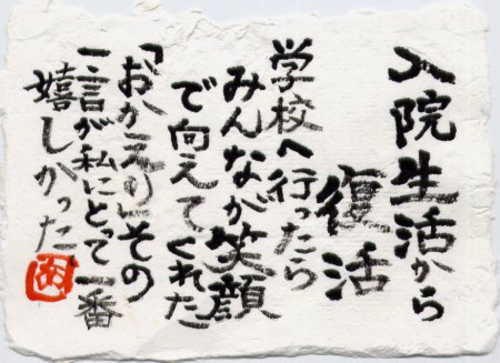 入院生活から
復活
学校へ行ったら
みんなが笑顔
で向えてくれた
「おかえり」その
一言が私にとって一番
嬉しかった。